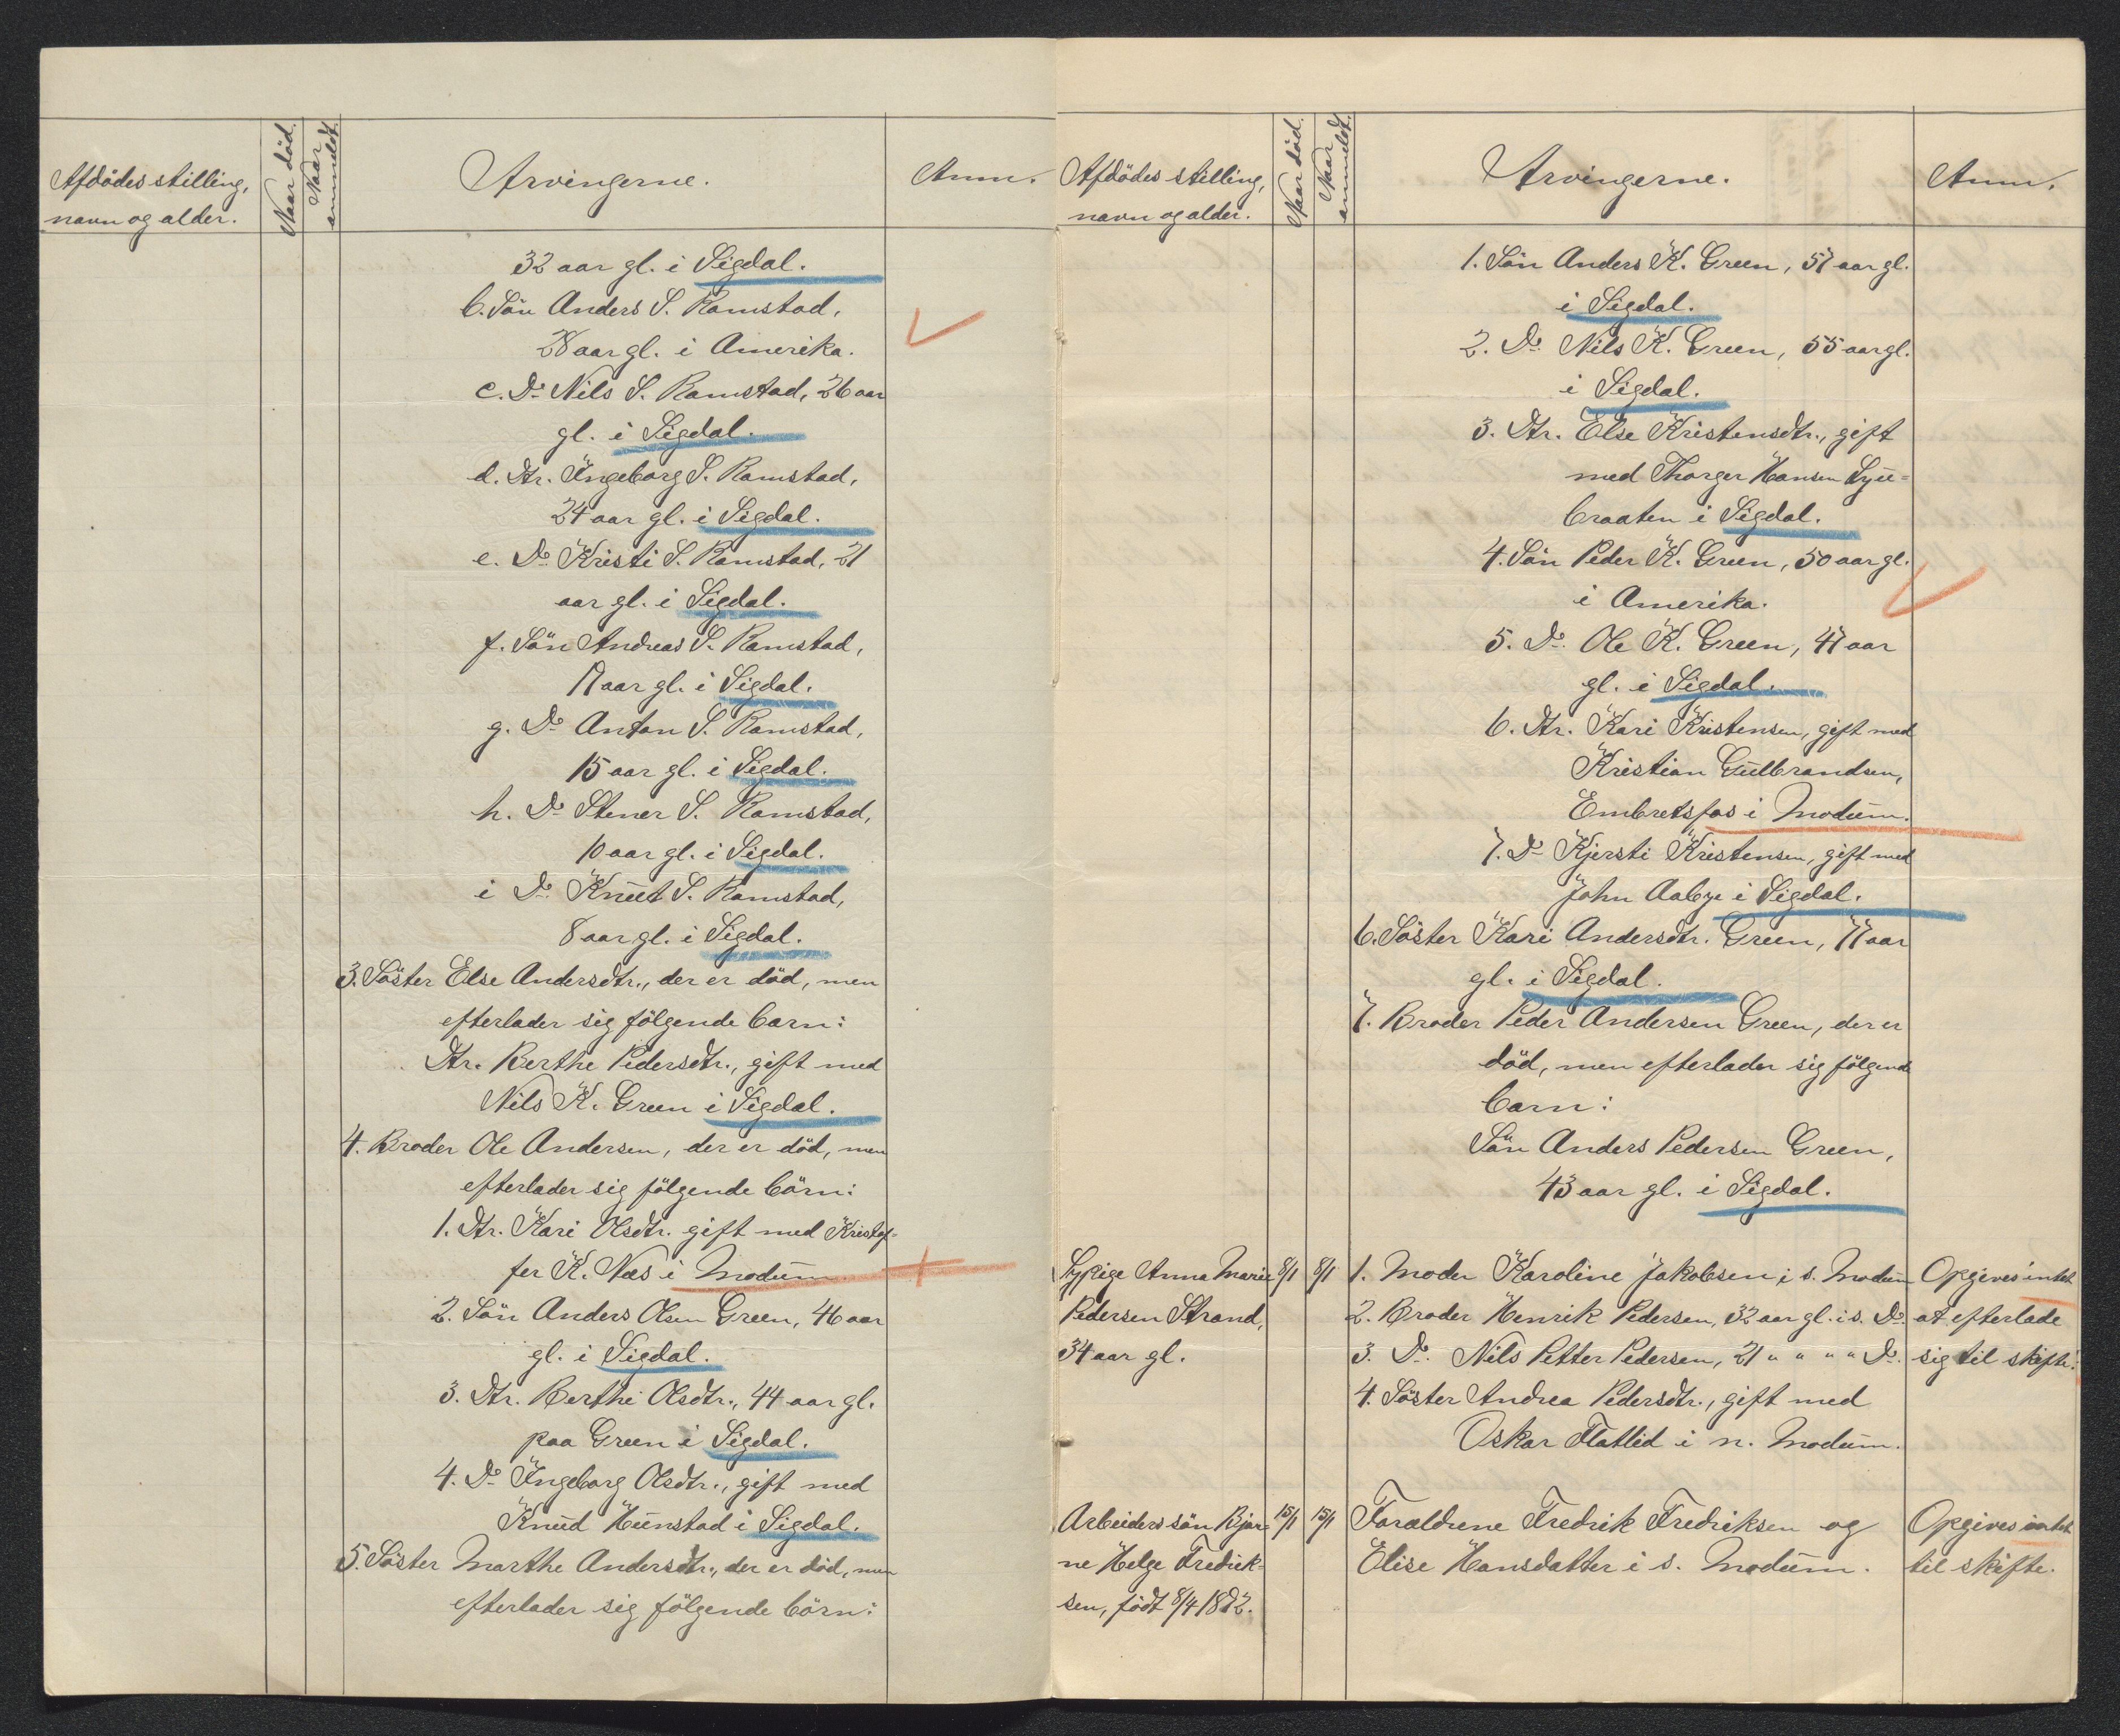 Afdödes stilling,
navn og alder.
Naar död.
Naar
anmeldt.
Arvingerne.
Anm.
32 aar gl. i Sigdal.
b. Sön Anders S. Ramstad,
28 aar gl. i Amerika.
c. Do Nils S. Ramstad, 26 aar
gl. i Sigdal.
d. Dtr. Ingeborg S. Ramstad,
24 aar gl. i Sigdal.
e. Do Kristi S. Ramstad, 21
aar gl. i Sigdal.
f. Sön Andreas S. Ramstad,
17 aar gl. i Sigdal.
g. Do Anton S. Ramstad,
15 aar gl. i Sigdal.
h. Do Stener S. Ramstad,
10 aar gl. i Sigdal.
i Do Knut S. Ramstad,
8 aar gl. i Sigdal.
3. Söster Else Andersdtr., der er död, men
efterlader sig fölgende barn:
Dtr. Berthe Pedersdtr., gift med
Nils K. Green i Sigdal.
4. Broder Ole Andersen, der er död, men
efterlader sig fölgende börn:
1. Dtr. Kari Olsdtr. gift med Kristof-
fer K. Næs i Modum.
2. Sön Anders Olsen Green, 46 aar
gl. i Sigdal.
3. Dtr. Berthe Olsdtr., 44 aar gl.
paa Green i Sigdal.
4. Do Ingeborg Olsdtr., gift med
Knud Hunstad i Sigdal.
5. Söster Marthe Andersdtr., der er död, men
efterlader sig fölgende börn:
Afdödes stilling,
navn og alder.
Naar död.
Naar
anmeldt.
Arvingerne.
Anm.
1. Sön Anders K. Green, 57 aar gl.
i Sigdal.
2. Do Nils K. Green, 55 aar gl.
i Sigdal.
3. Dtr. Else Kristensdtr., gift
med Thorger Hansen
braaten i Sigdal.
4. Sön Peder K. Green, 50 aar gl.
i Amerika.
5. Do Ole K. Green, 47 aar
gl. i Sigdal.
6. Dtr. Kari Kristensen, gift med
Kristian Gulbrandsen,
Embretsfos i Modum.
7. Do Kjersti Kristensen, gift med
John Aaby i Sigdal.
6. Söster Kari Andersdtr. Green, 77 aar
gl. i Sigdal.
7. Broder Peder Andersen Green, der er
död, men efterlader sig fölgende
barn:
Sön Anders Pedersen Green,
43 aar gl. i Sigdal.
Sypige Anna Marie 8/1 8/1 1. Moder Karoline Jakobsen i s. Modum Opgives intet
Pedersen Strand, 2. Broder Henrik Pedersen, 32 aar gl. i s. Do. at efterlade
34 aar gl. 3. Do. Nils Petter Pedersen, 21 " " " " Do. sig til skifte.
4. Söster Andrea Pedersdtr., gift med
Oskar Flatlid i n. Modum.
Arbeiders sön Bjar- 15/1 15/1 Forældrene Fredrik Fredriksen og Opgives intet
ne Helge Fredrik- Elise Hansdatter i s. Modum. til skifte.
sen, födt 8/4